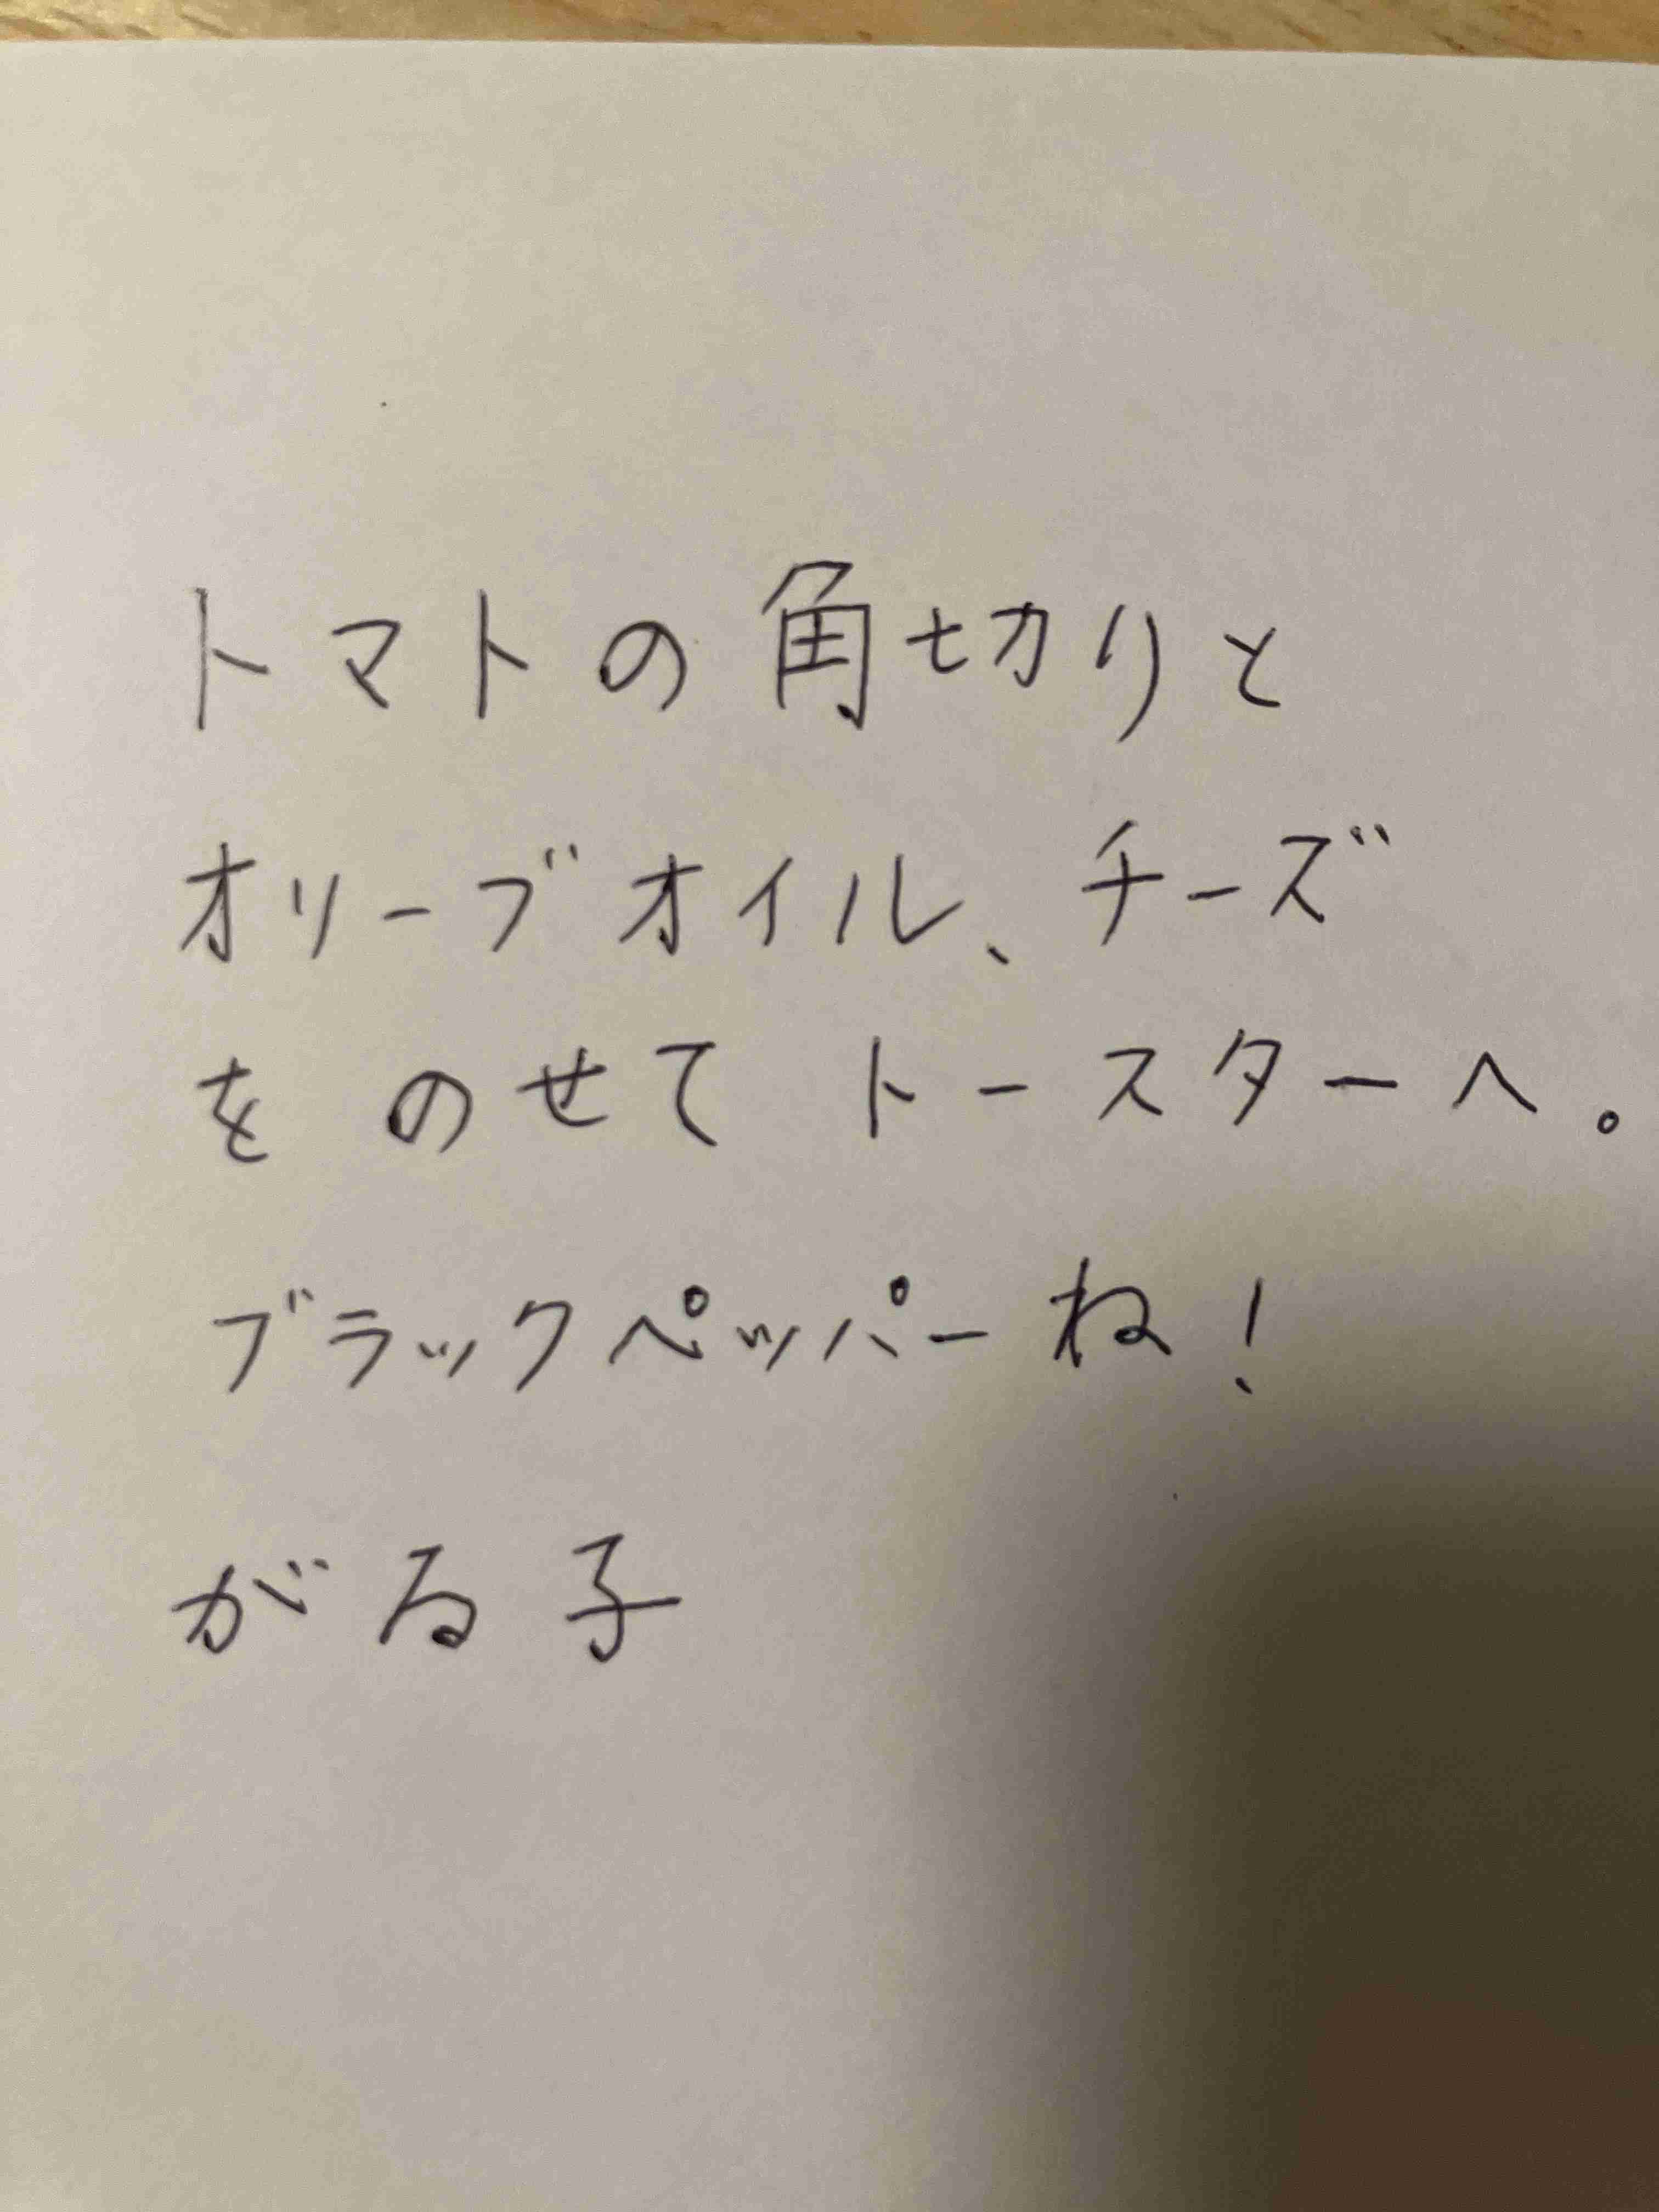 トマトの角切りと
オリーブオイル、チーズ
をのせてトースターへ。
ブラックペッパーね！
がる子